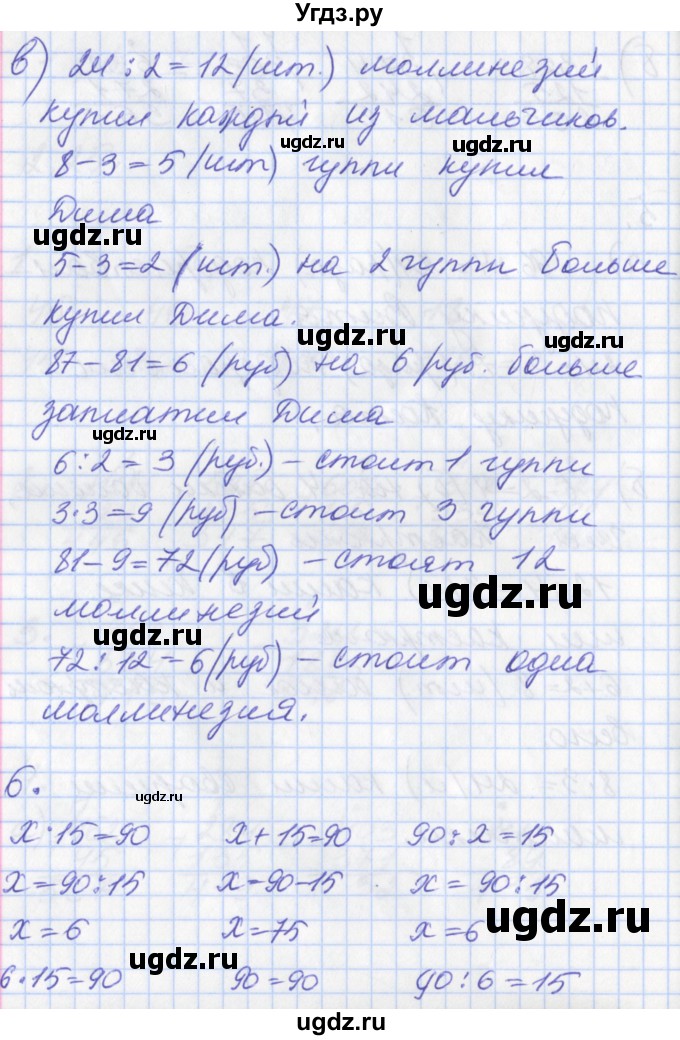 Угдз.ру
в) 24 : 2 = 12 (шт.) моллинезий
купил каждый из мальчиков.
ugdz.ru ugdz.ru
8 - 3 = 5 (шт) гуппи купил
Дима
ugdz.ru ugdz.ru
5 - 3 = 2 (шт.) на 2 гуппи больше
купил Дима.
ugdz.ru ugdz.ru
87 - 81 = 6 (руб) на 6 руб. больше
заплатил Дима
ugdz.ru
6 : 2 = 3 (руб.) - стоит 1 гуппи
3 · 3 = 9 (руб) - стоит 3 гуппи
81 - 9 = 72 (руб) - стоят 12
ugdz.ru
моллинезий
ugdz.ru
72 : 12 - 6 (руб) - стоит одна
моллинезия.
6.
ugdz.ru
x · 15 = 90 x + 15 = 90 90 : x = 15
x = 90 : 15 x = 90 - 15 x = 90 : 15
x = 6 x = 75 x = 6
ugdz.ru
ugdz.ru
6 · 15 = 90 90 = 90 90 : 6 = 15
ugdz.ru